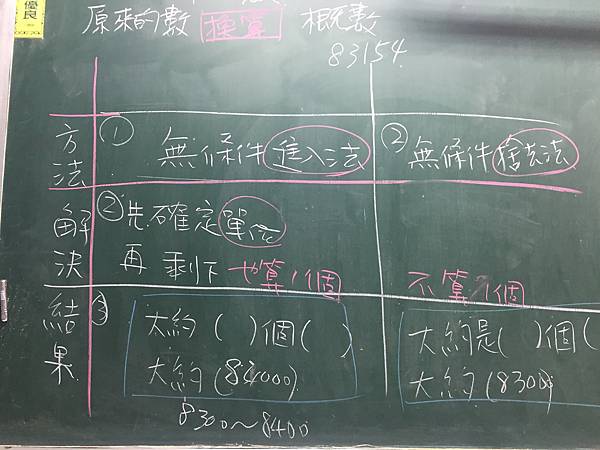 優良
原來的數 換算 概元數
83154
方法 ① 無條件進入法 ② 無條件捨去法
解決 ②先確定單位
再 剩下 也算1個 不算1個
結果 ③ 大約( )個( ) 大約是( )個(
大約(84000) 大約(8300)
8300~8400